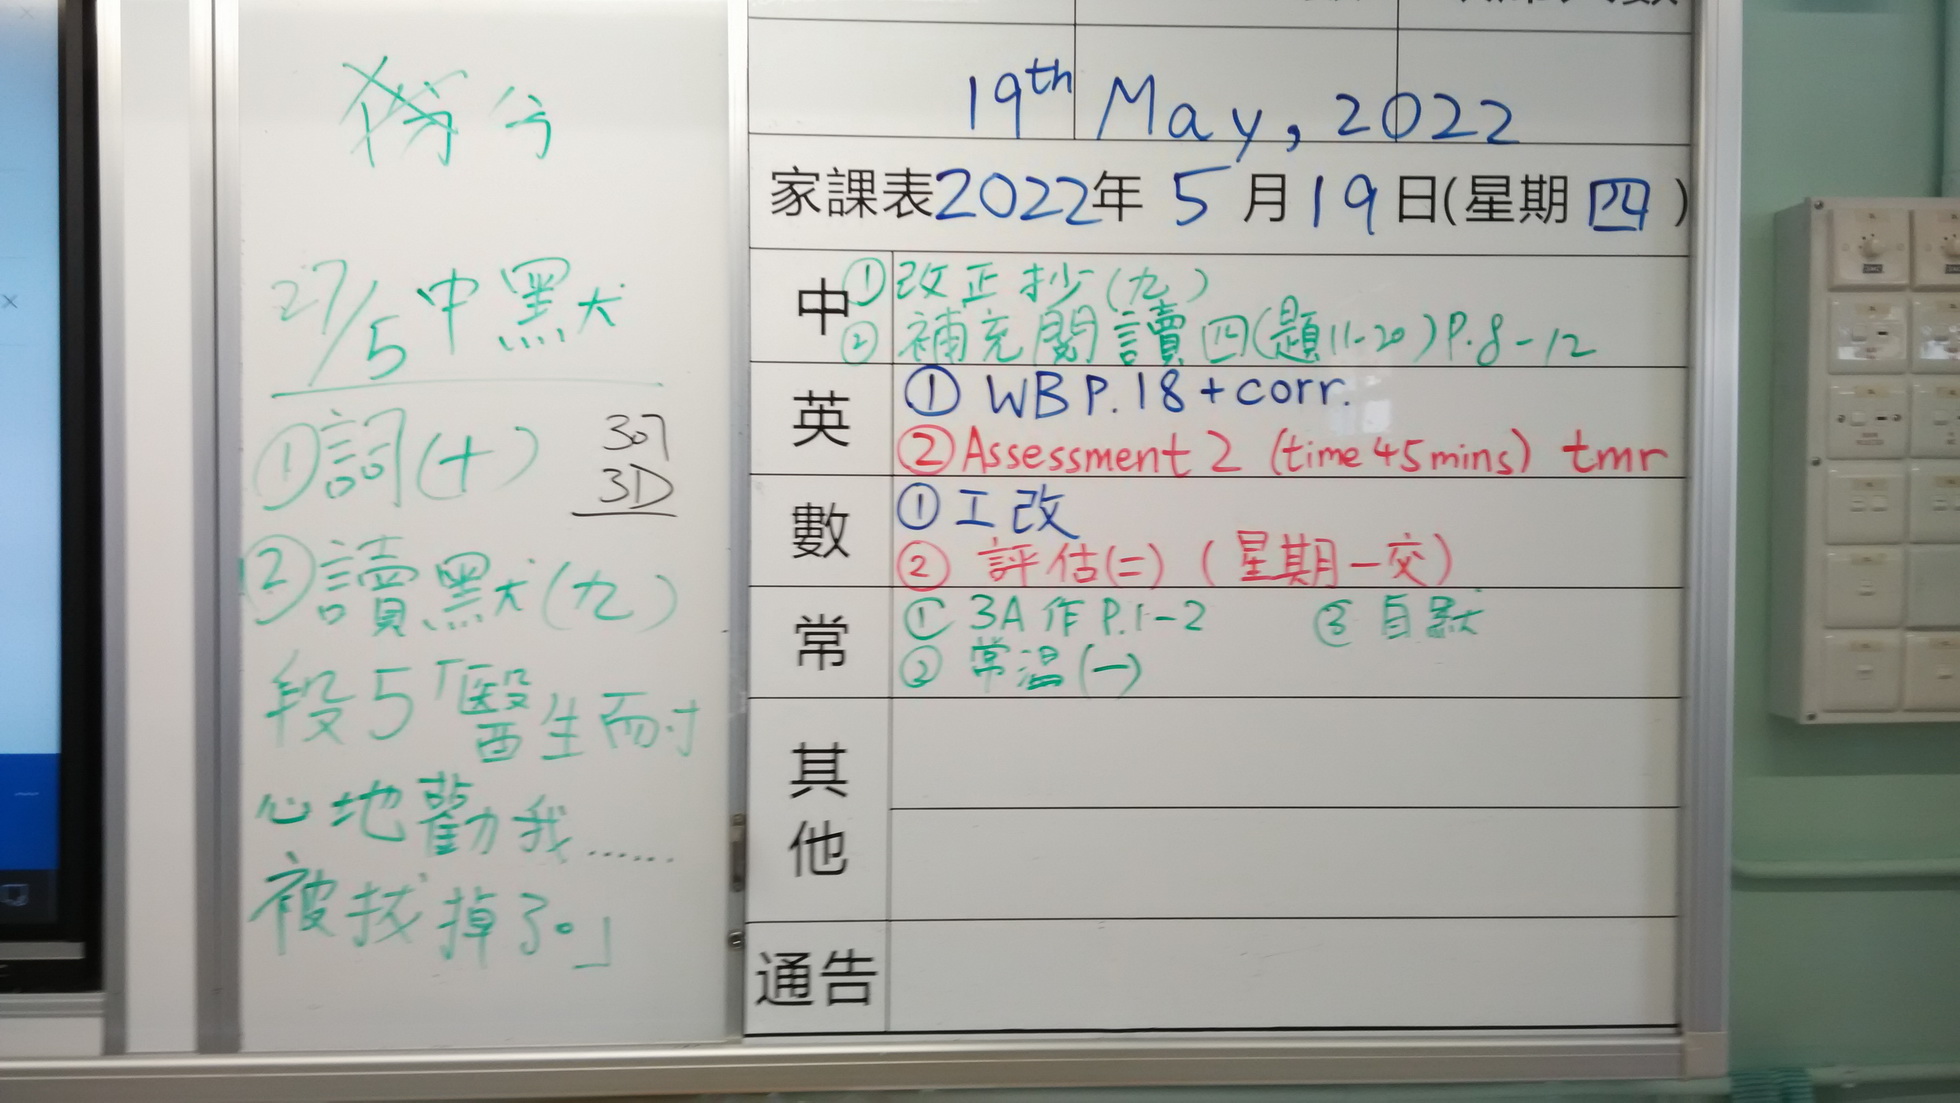 分
27/5 中默
①詞(十)
307
3D
②讀默(九)
段5「醫生耐
心地勸我……
被拔掉了。」
19th May, 2022
家課表2022年 5 月 19 日(星期 四 )
中
①改正 抄(九)
②補充閱讀 四(題11-20) P.8-12
英
① WB P.18 + corr.
② Assessment 2 (time 45 mins) tmr
數
① 工改
② 評估(二) (星期一交)
常
① 3A 作 P.1-2 ③ 自默
② 常温(一)
其
他
通告